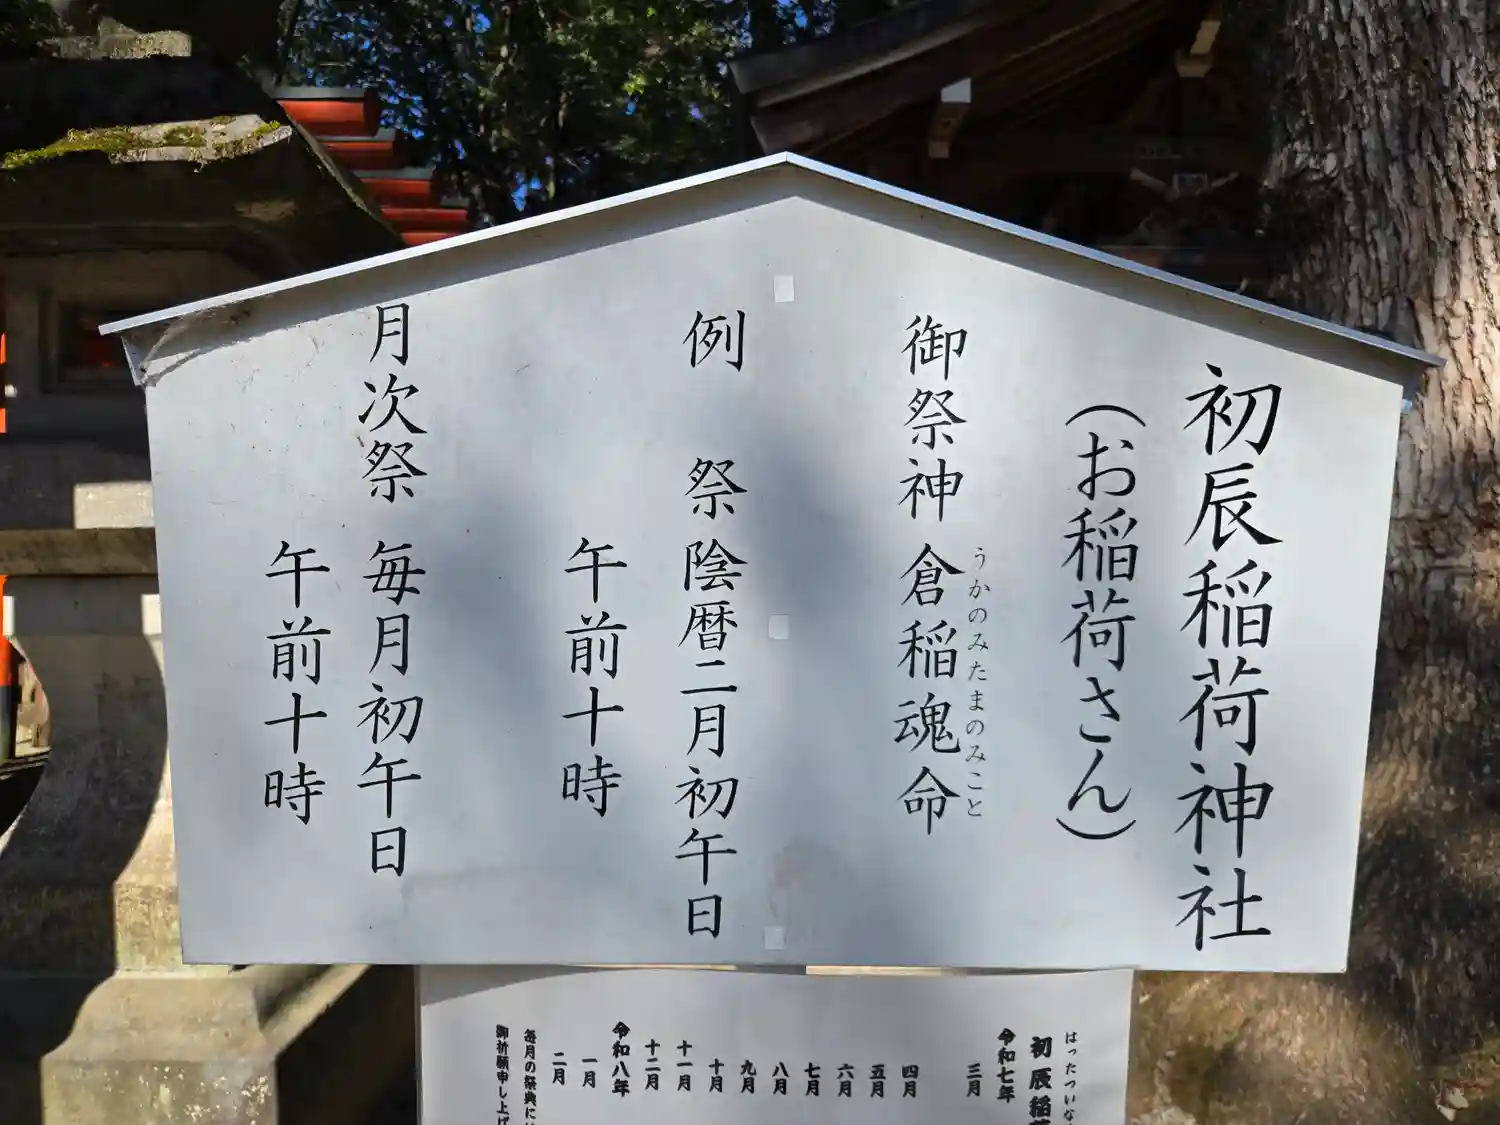 初辰稲荷神社
（お稲荷さん）
御祭神 倉稲魂命
うかのみたまのみこと
例 祭 陰暦二月初午日
午前十時
月次祭 毎月初午日
午前十時
はったついな
初辰稲
令和七年
三月
四月
五月
六月
七月
八月
九月
十月
十一月
十二月
令和八年
一月
二月
毎月の祭典に
御祈願申し上げ